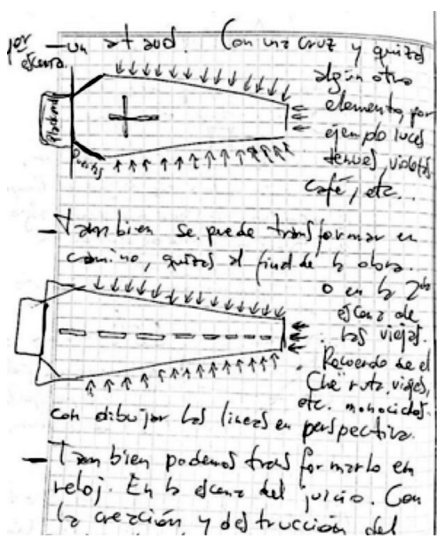 por escena
— un ataud. Con una cruz y quizás
algún otro
elemento, por
ejemplo luces
tenues violetas
café, etc...
— Tambien se puede transformar en
camino, quizás al final de la obra.
o en la 2da
escena de
las viejas.
Recuerdo de el
Che ruta, viajes,
etc. monociclos.
con dibujar las lineas en perspectiva.
— Tambien podemos transformarlo en
reloj. En la escena del juicio. Con
la creación y destrucción del